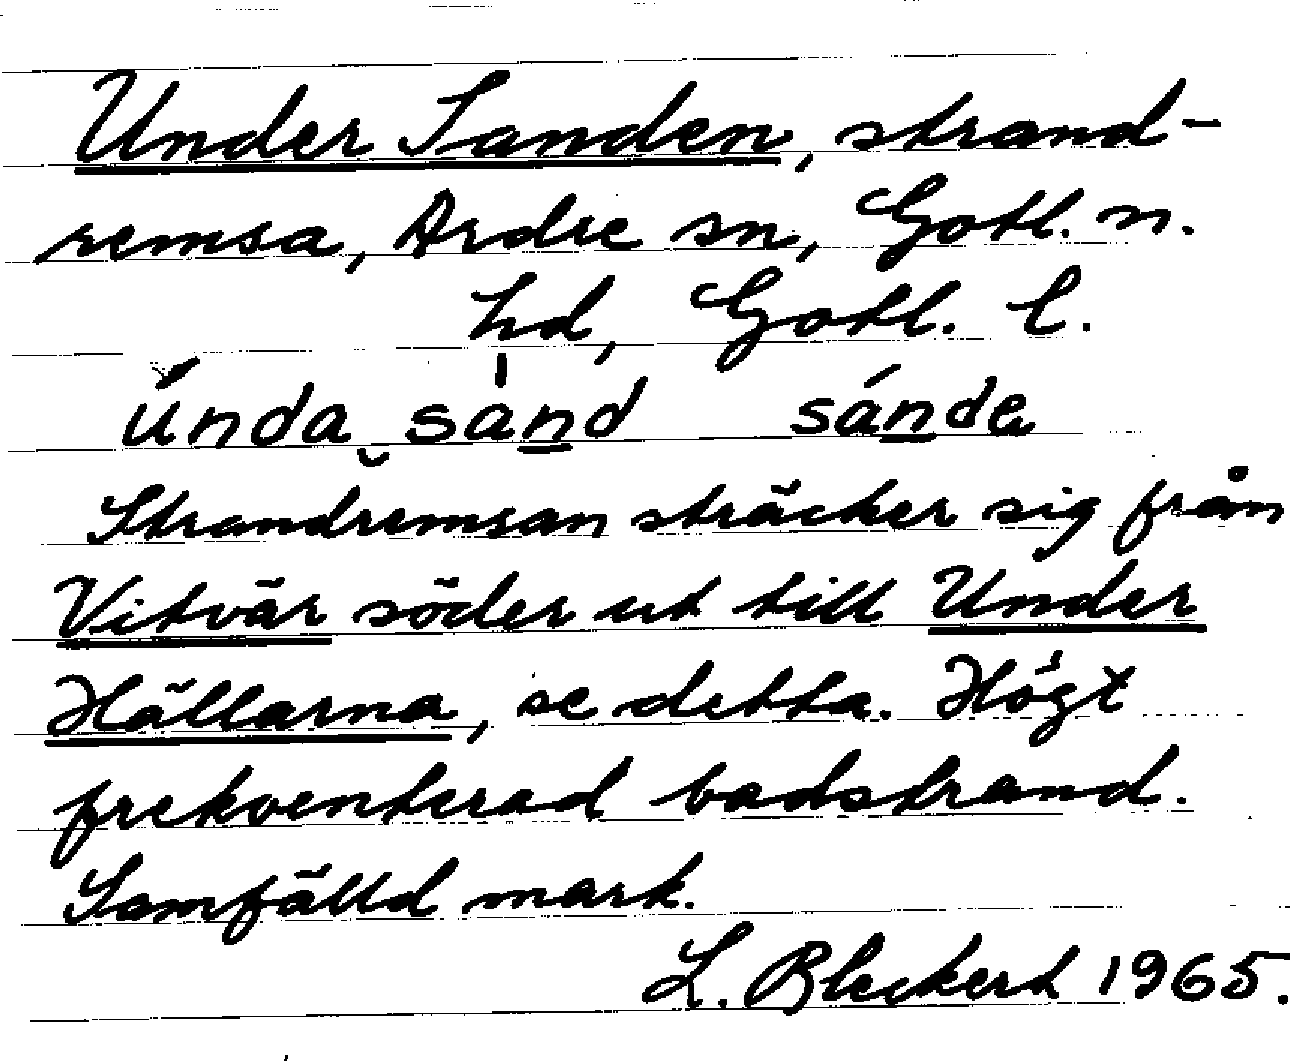 Under Sanden, strand-
remsa, Ardre sn, Gotl. n.
hd, Gotl. l.
únda sand sánde
Strandremsan sträcker sig från
Vitvär söder ut till Under
Hällarna, se detta. Högt
frekventerad badstrand.
Samfälld mark.
L. Bleckert 1965.